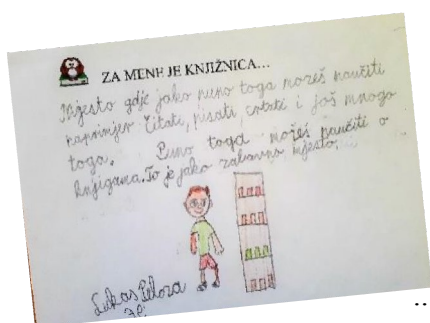 ZA MENE JE KNJIŽNICA...
Mjesto gdje jako puno toga možeš naučiti
naprimjer čitati, pisati, crtati i još mnogo
toga. Puno toga možeš naučiti o
knjigama. To je jako zabavno mjesto.
Lukas